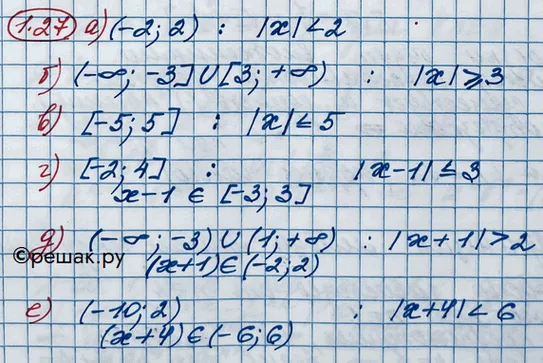 1.27 а) (-2; 2) : |x| < 2
б) (-∞; -3] ∪ [3; +∞) : |x| ⩾ 3
в) [-5; 5] : |x| ≤ 5
г) [-2; 4] : |x-1| ≤ 3
x-1 ∈ [-3; 3]
д) (-∞; -3) ∪ (1; +∞) : |x+1| > 2
©решак.ру
(x+1) ∈ (-2; 2)
е) (-10; 2) : |x+4| < 6
(x+4) ∈ (-6; 6)